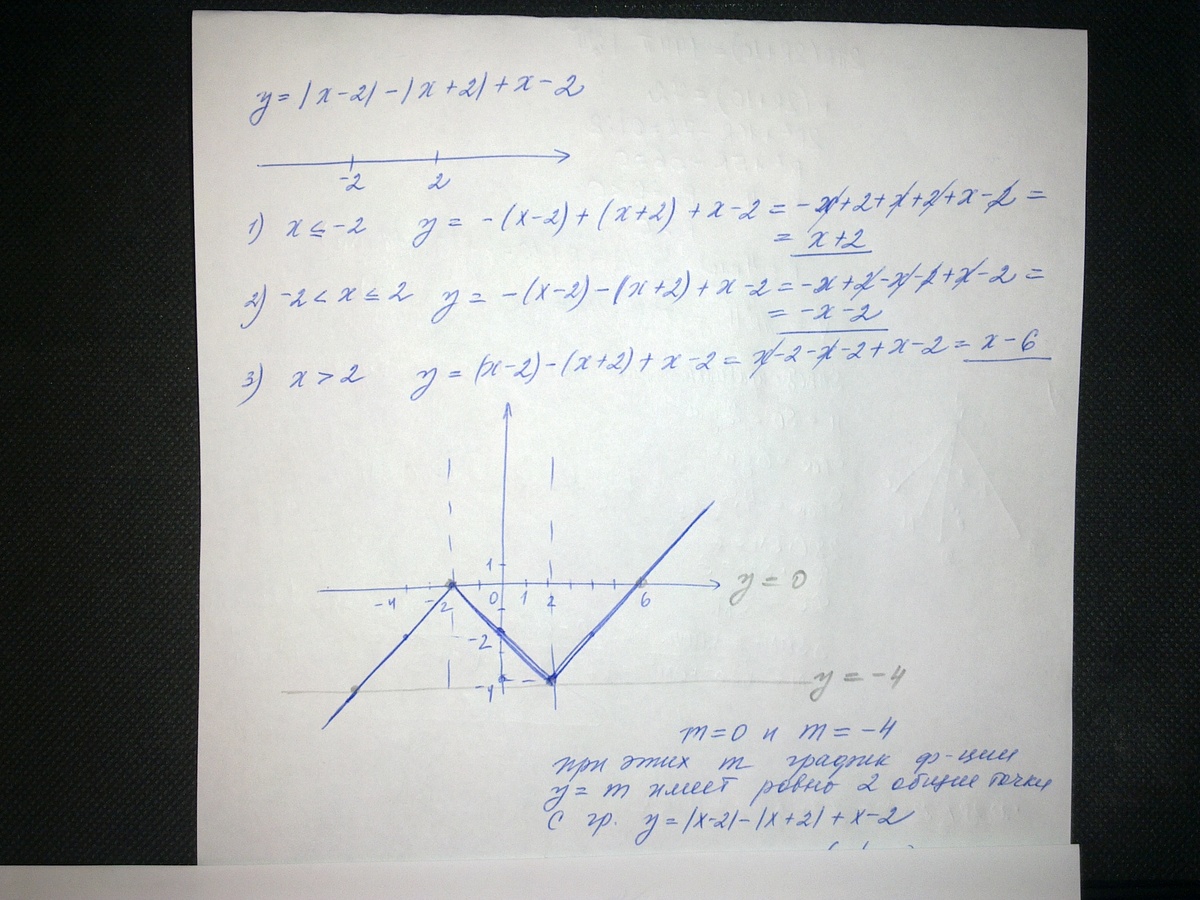 y = |x-2| - |x+2| + x - 2
-2 2
1) x ≤ -2 y = -(x-2) + (x+2) + x-2 = -x+2+x+2+x-2 =
= x+2
2) -2 < x ≤ 2 y = -(x-2) - (x+2) + x-2 = -x+2-x-2+x-2 =
= -x-2
3) x > 2 y = (x-2) - (x+2) + x-2 = x-2-x-2+x-2 = x-6
1
y = 0
-4 -2 0 1 2 6
-2
-4
y = -4
m=0 и m = -4
при этих m график ф-ции
y = m имеет ровно 2 общие точки
с гр. y = |x-2| - |x+2| + x-2